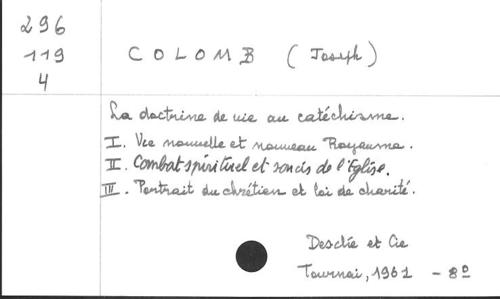 296
119
4
COLOMB (Joseph)
La doctrine de vie au catéchisme.
I. Vie nouvelle et nouveau Royaume.
II. Combat spirituel et soucis de l'Eglise.
III. Portrait du chrétien et loi de charité.
Desclée et Cie
Tournai, 1961 - 8º